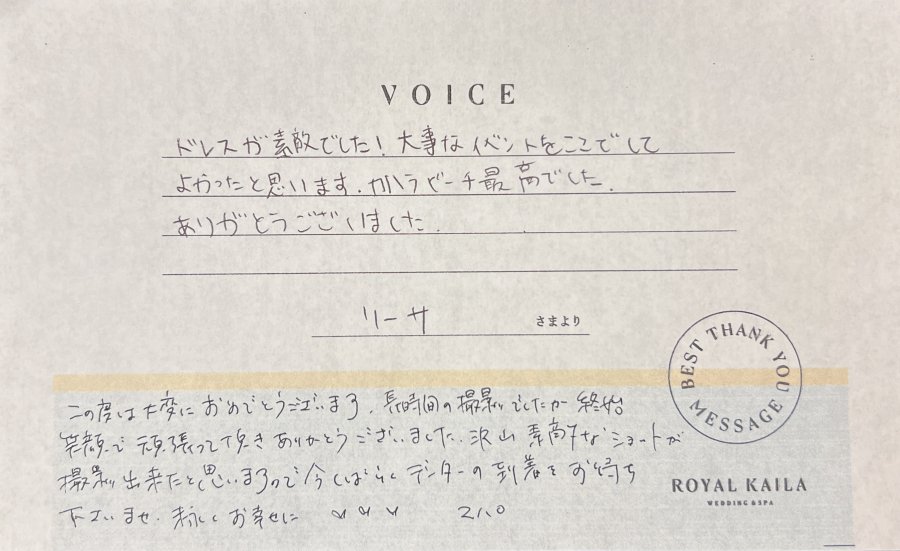 VOICE
ドレスが素敵でした！大事なイベントをここでして
よかったと思います。カハラビーチ最高でした。
ありがとうございました。
リーサ さまより
BEST THANK YOU MESSAGE
この度は大変におめでとうございます。長時間の撮影でしたが終始
笑顔で頑張って頂きありがとうございました。沢山素高なショートが
撮影出来たと思いますので今しばらくデーターの到着をお待ち
下さいませ。末永くお幸せに
ROYAL KAILA
WEDDING & SPA